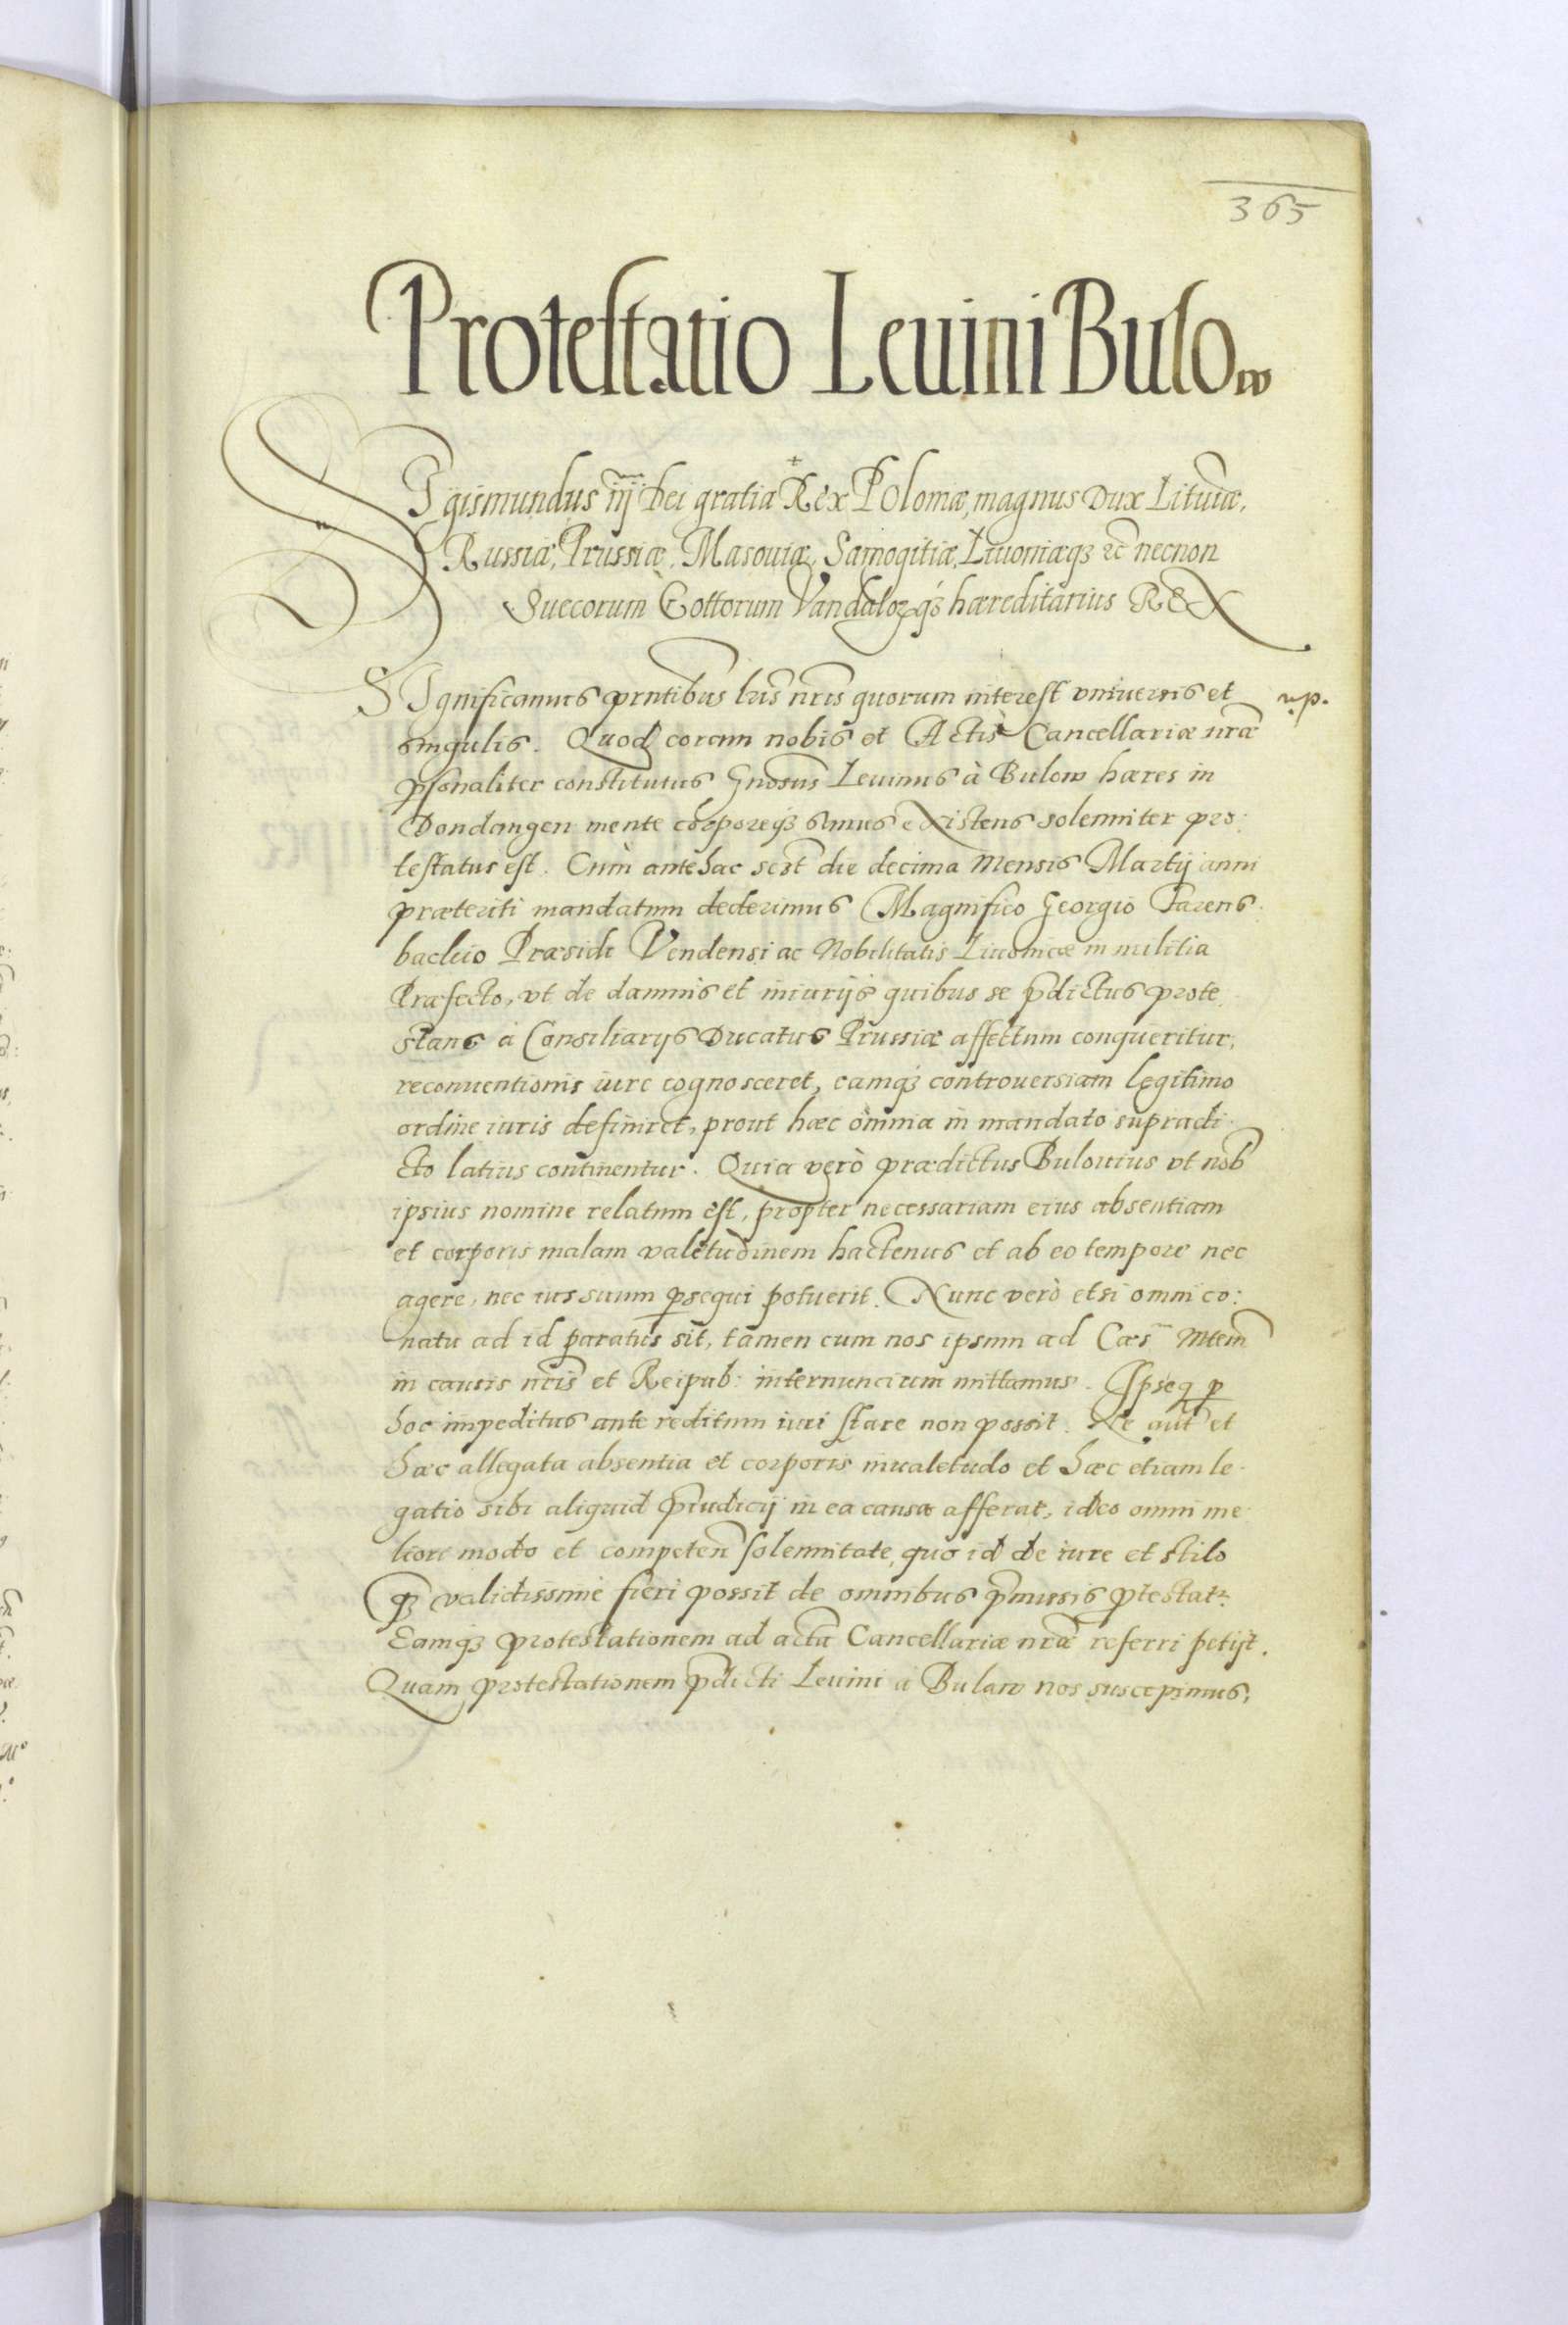 365
Protestatio Leuini Bulow
SIgismundus iij Dei gratia Rex Poloniæ, magnus Dux Lituaniæ,
Russiæ, Prussiæ, Masouiæ, Samogitiæ, Liuoniæq3 &c necnon
Suecorum Gottorum Vandaloꝝq3 hæreditarius REX
SIgnificamus pñtibus lris nr̃is quorum interest vniuersis et
singulis. Quod coram nobis et Actis Cancellariæ nr̃æ
ꝑsonaliter constitutus Gnosus Leuinus à Bulow hæres in
Dondangen mente corporeq3 sanus existens solenniter pro:
testatus est. Cum antehac die decima Mensis Martij anni
præteriti mandatum dederimus Magnifico Georgio Farens
bachio Præsidi Vendensi ac Nobilitatis Liuonicæ in militia
Præfecto, vt de damnis et iniurijs quibus se p̃dictus prote
stans à Consiliarijs Ducatus Prussiæ affectum conqueritur,
reconuentionis iure cognosceret, eamq3 controuersiam legitimo
ordine iuris definiret, prout hæc omnia in mandato supradi
cto latius continentur. Quia verò prædictus Bulouius vt nob
ipsius nomine relatum est, propter necessariam eius absentiam
et corporis malam valetudinem hactenus et ab eo tempore nec
agere, nec ius suum ꝑsequi potuerit. Nunc verò etsi omni co:
natu ad id paratus sit, tamen cum nos ipsum ad Cæs. Mtem
in causis nr̃is et Reipub: internuncium mittamus. Ipseq ꝑ
hoc impeditus ante reditum iuri stare non possit. Ne aut et
hæc allegata absentia et corporis inualetudo et hæc etiam le
gatio sibi aliquid p̃iudicij in ea causa afferat, ideo omni me
liori modo et competen solennitate, quo id de iure et stilo
q3 validissime fieri possit de omnibus p̃missis ꝓtestatr.
Eamq3 protestationem ad acta Cancellariæ nr̃æ referri petijt.
Quam protestationem p̃dicti Leuini à Bulaw nos suscepimus,